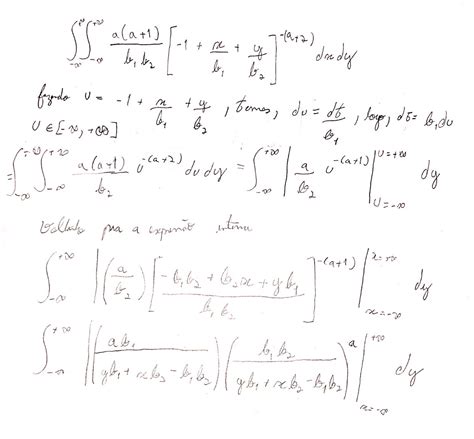 ∫_{-∞}^{+∞} ∫_{-∞}^{+∞} a(a+1)/(b₁b₂) [-1 + x/b₁ + y/b₂]^{-(a+2)} dx dy
fazendo U = -1 + x/b₁ + y/b₂, temos, du = dx/b₁, logo, dx = b₁du
U ∈ [-∞, +∞]
= ∫_{-∞}^{+∞} ∫_{-∞}^{+∞} a(a+1)/b₂ U^{-(a+2)} du dy = ∫_{-∞}^{+∞} | a/b₂ U^{-(a+1)} |_{U=-∞}^{U=+∞} dy
pra a expressão interna
∫_{-∞}^{+∞} | (a/b₂) [(-b₁b₂ + b₂x + yb₁)/(b₁b₂)]^{-(a+1)} |_{x=-∞}^{x=+∞} dy
∫_{-∞}^{+∞} | (ab₁/(yb₁ + xb₂ - b₁b₂)) (b₁b₂/(yb₁ + xb₂ - b₁b₂))^a |_{x=-∞}^{+∞} dy